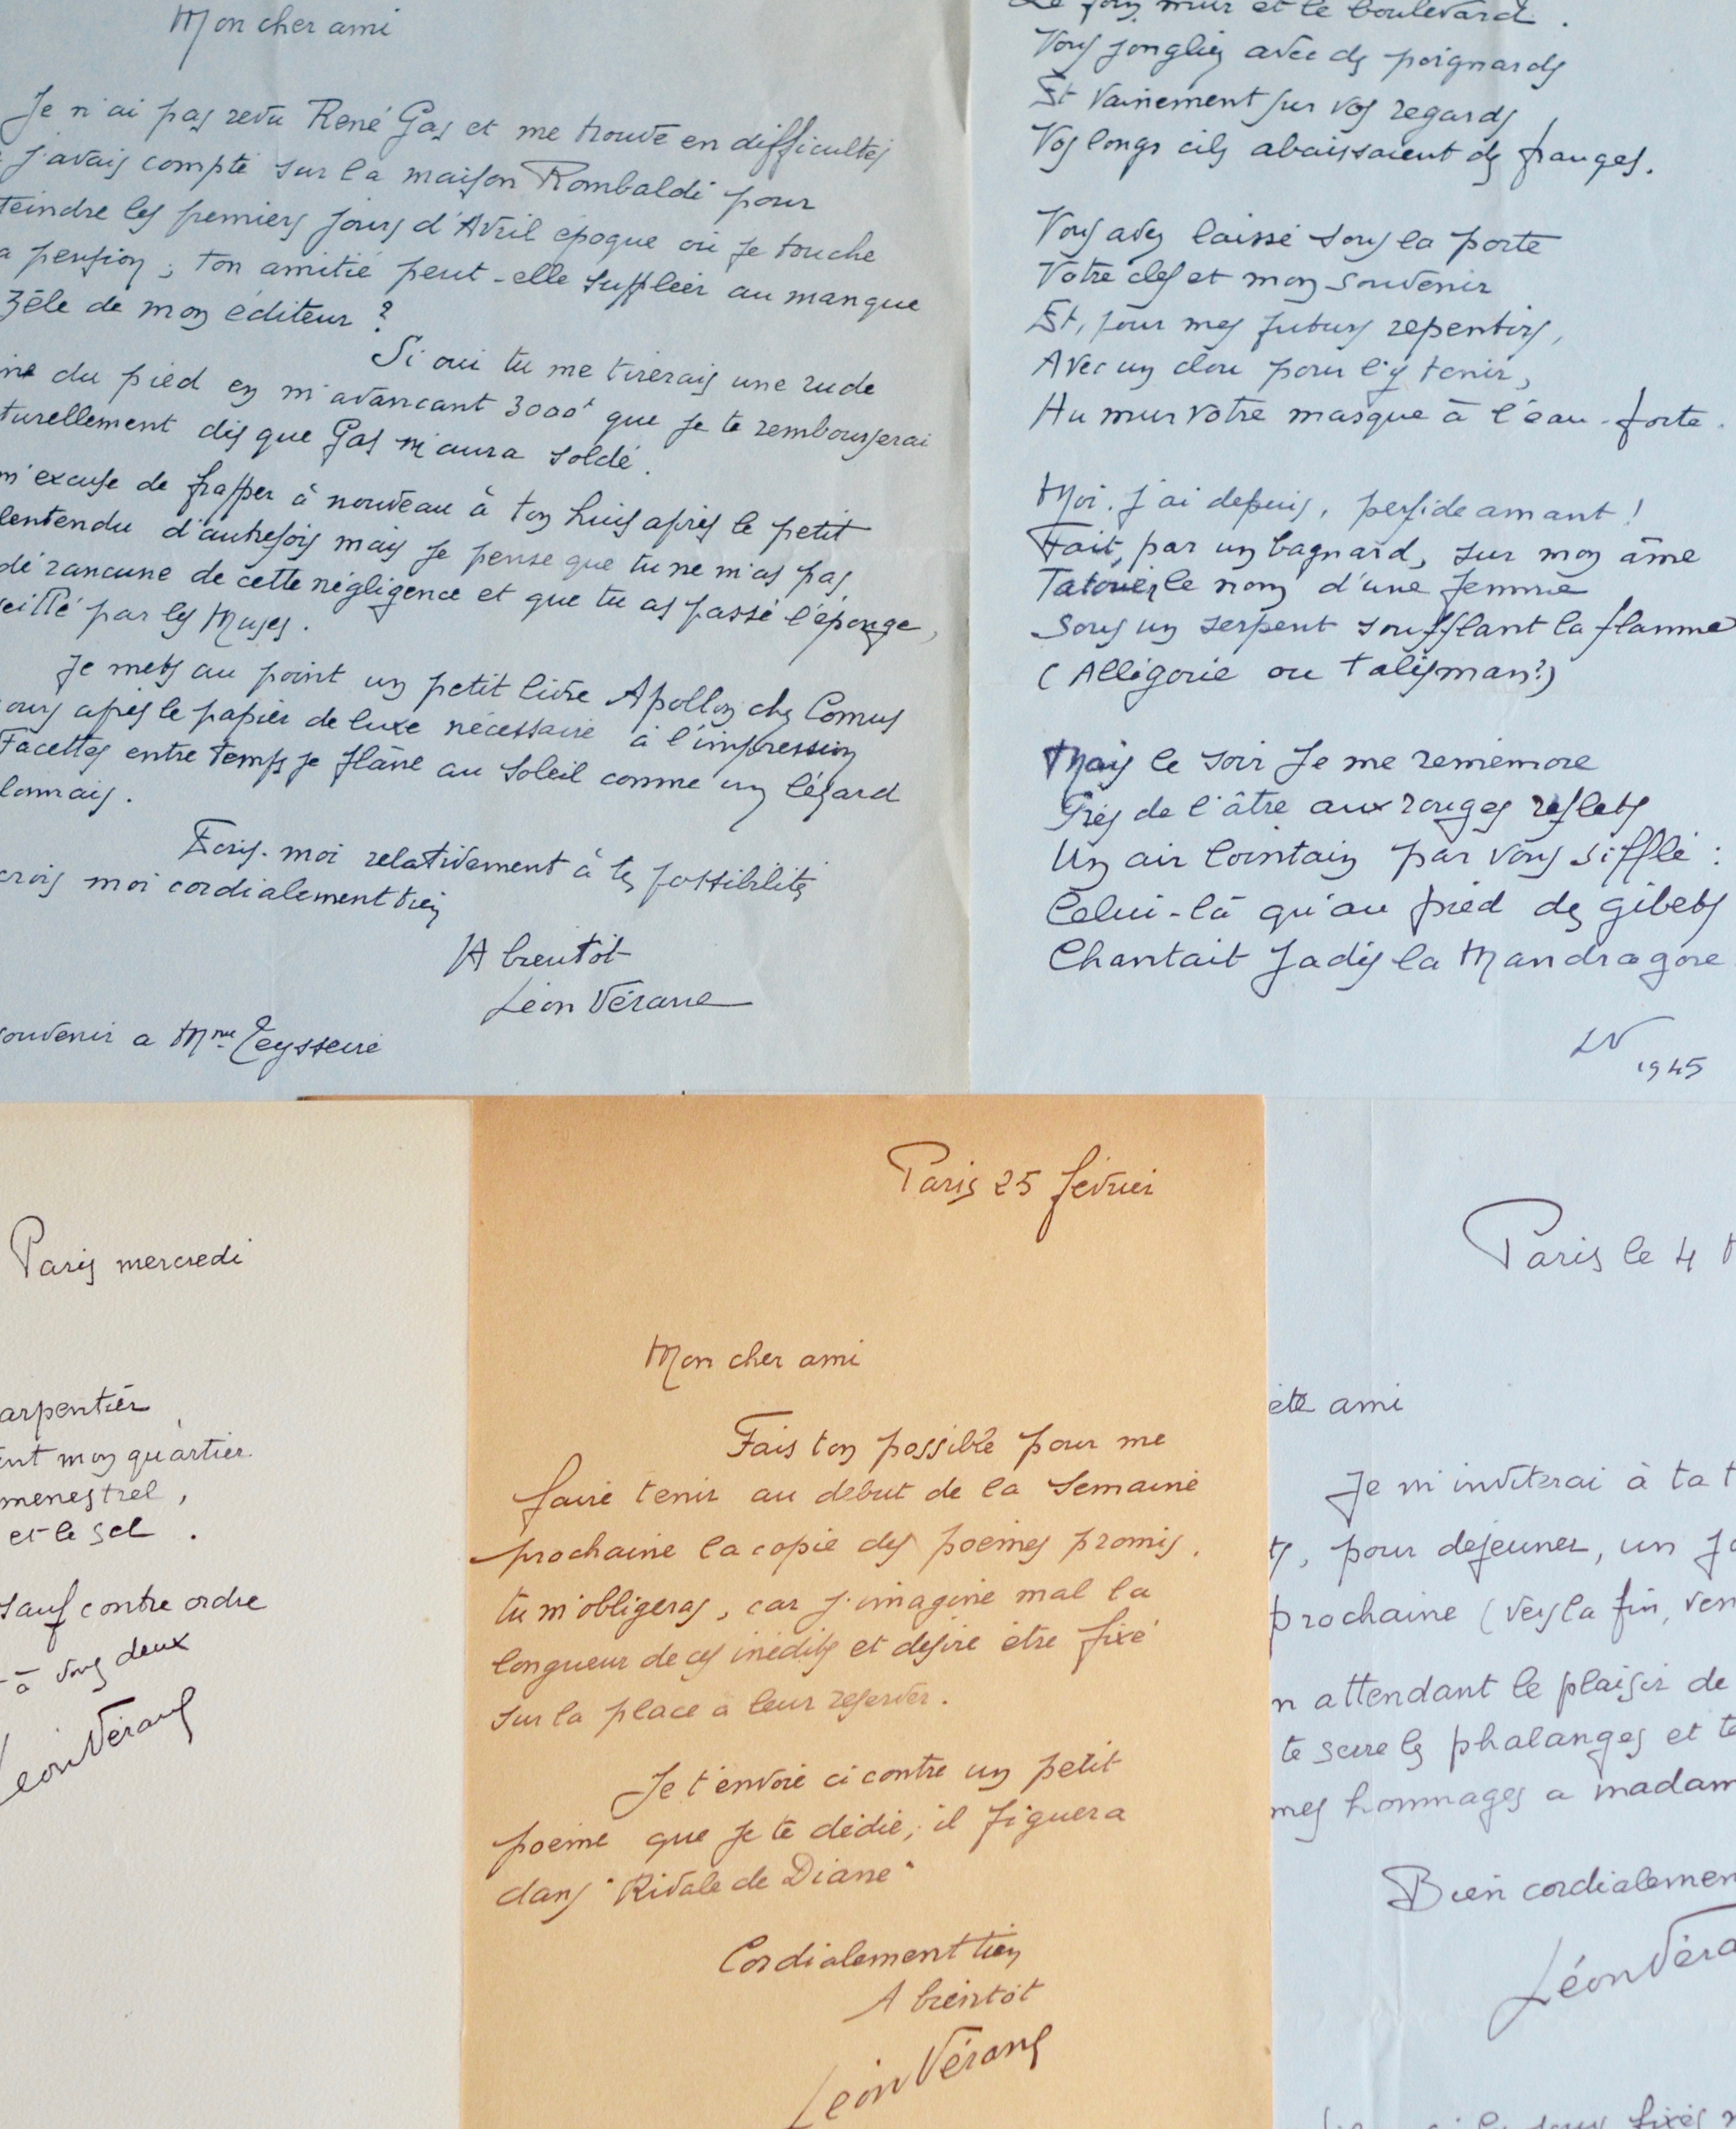 Mon cher ami
Je n'ai pas revu René Gas et me trouve en difficultés
j'avais compté sur la maison Rombaldi pour
teindre les premiers jours d'Avril époque où je touche
a pension ; ton amitié peut-elle suppléer au manque
zèle de mon éditeur ?
Si oui tu me tirerais une rude
ine du pied en m'avancant 3000f que je te rembourserai
turellement dis que Gas m'aura soldé.
m'excuse de frapper à nouveau à ton huis après le petit
lentendu d'autrefois mais je pense que tu ne m'as pas
dé rancune de cette négligence et que tu as passé l'éponge,
seillé par les Muses.
Je mets au point un petit livre Apollon chez Comus
ours après le papier de luxe nécessaire à l'impression
Facettes entre temps je flâne au soleil comme un lézard
lonnais.
Ecris-moi relativement à tes possibilités
crois moi cordialement tien
A bientôt
Léon Vérane
souvenir a Mme Teysseire
Le mur et le boulevard.
Vous jongliez avec des poignards
Et vainement sur vos regards
Vos longs cils abaissaient des franges.
Vous avez laissé sous la porte
Votre clef et mon souvenir
Et, pour mes futurs repentirs,
Avec un clou pour l'y tenir,
Au mur votre masque à l'eau-forte.
Moi, j'ai depuis, perfide amant !
Fait, par un bagnard, sur mon âme
Tatouer le nom d'une femme
Sous un serpent soufflant la flamme
(Allégorie ou talisman?)
Mais le soir je me remémore
Près de l'âtre aux rouges reflets
Un air lointain par vous sifflé :
Celui-là qu'au pied des gibets
Chantait jadis la Mandragore
LV
1945
Paris mercredi
arpentier
ent mon quartier
menestrel,
et le sel.
sauf contre ordre
à vous deux
Léon Vérane
Paris 25 février
Mon cher ami
Fais ton possible pour me
faire tenir au début de la semaine
prochaine la copie des poèmes promis,
tu m'obligeras, car j'imagine mal la
longueur de ces inédits et désire être fixé
sur la place a leur réserver.
Je t'envoie ci contre un petit
poème que je te dédie, il figuera
dans "Rivale de Diane"
Cordialement tien
A bientôt
Léon Vérane
Paris le 4
ète ami
Je m'inviterai à ta t
ts, pour déjeuner, un jo
prochaine (vers la fin, ven
n attendant le plaisir de
te serre les phalanges et te
mes hommages a madam
Bien cordialemen
Léon Véra